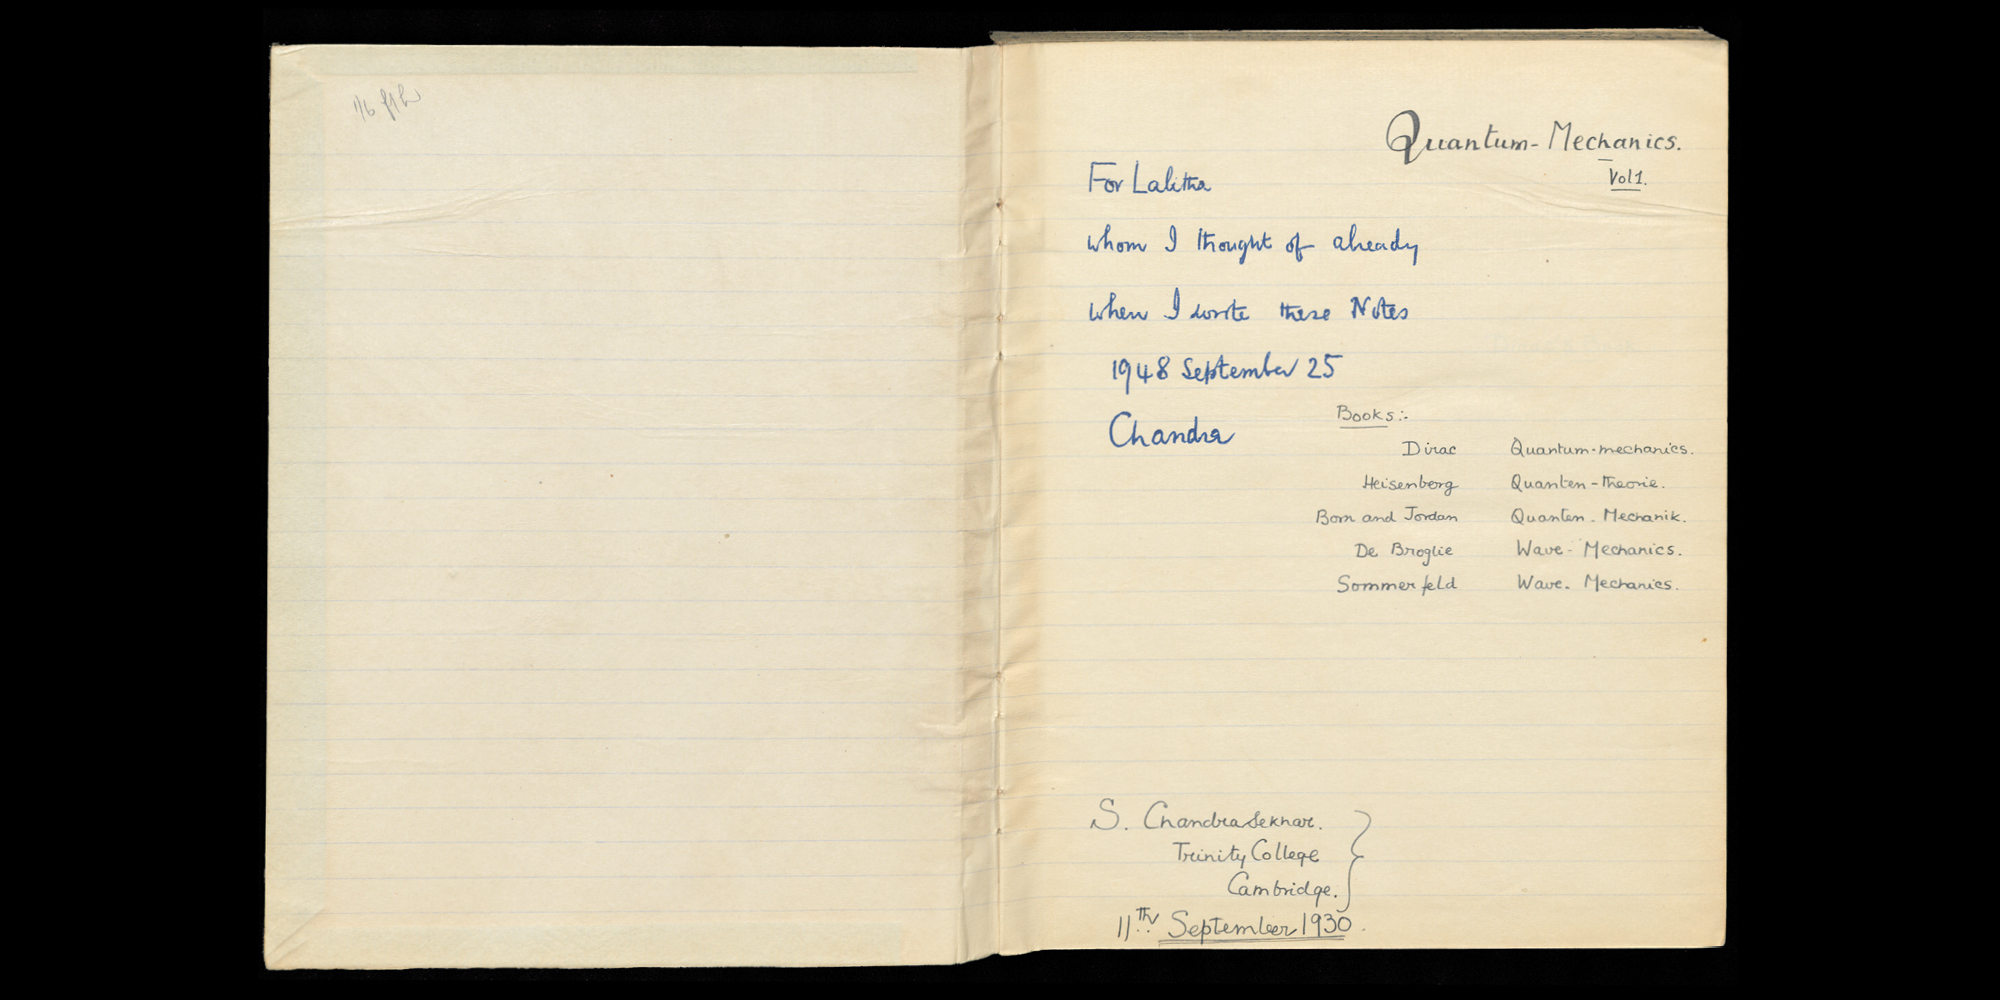 Quantum-Mechanics.
Vol 1.
For Lalitha
whom I thought of already
when I wrote these Notes
1948 September 25
Chandra
Books:-
Dirac Quantum-mechanics.
Heisenberg Quanten-theorie.
Born and Jordan Quanten-Mechanik.
De Broglie Wave-Mechanics.
Sommerfeld Wave-Mechanics.
S. Chandrasekhar.
Trinity College
Cambridge.
11th September 1930.